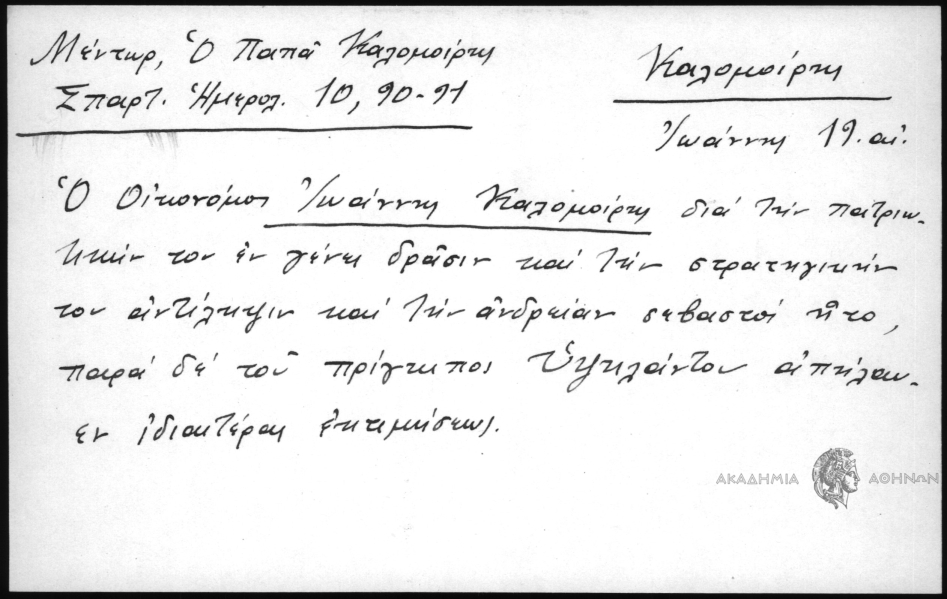 Μέντωρ, Ὁ Παπᾶ Καλομοίρης
Σπαρτ. Ἡμερολ. 10, 90-91
Καλομοίρης
Ἰωάννης 19. αἰ.
Ὁ Οἰκονόμος Ἰωάννης Καλομοίρης διά τήν πατριω-
τικήν του ἐν γένει δρᾶσιν καί τήν στρατηγικήν
του ἀντίληψιν καί τήν ἀνδρείαν σεβαστός ἦτο,
παρά δέ τοῦ πρίγκηπος Ὑψηλάντου ἀπήλαυ-
εν ἰδιαιτέρας ἐκτιμήσεως.
ΑΚΑΔΗΜΙΑ ΑΘΗΝΩΝ